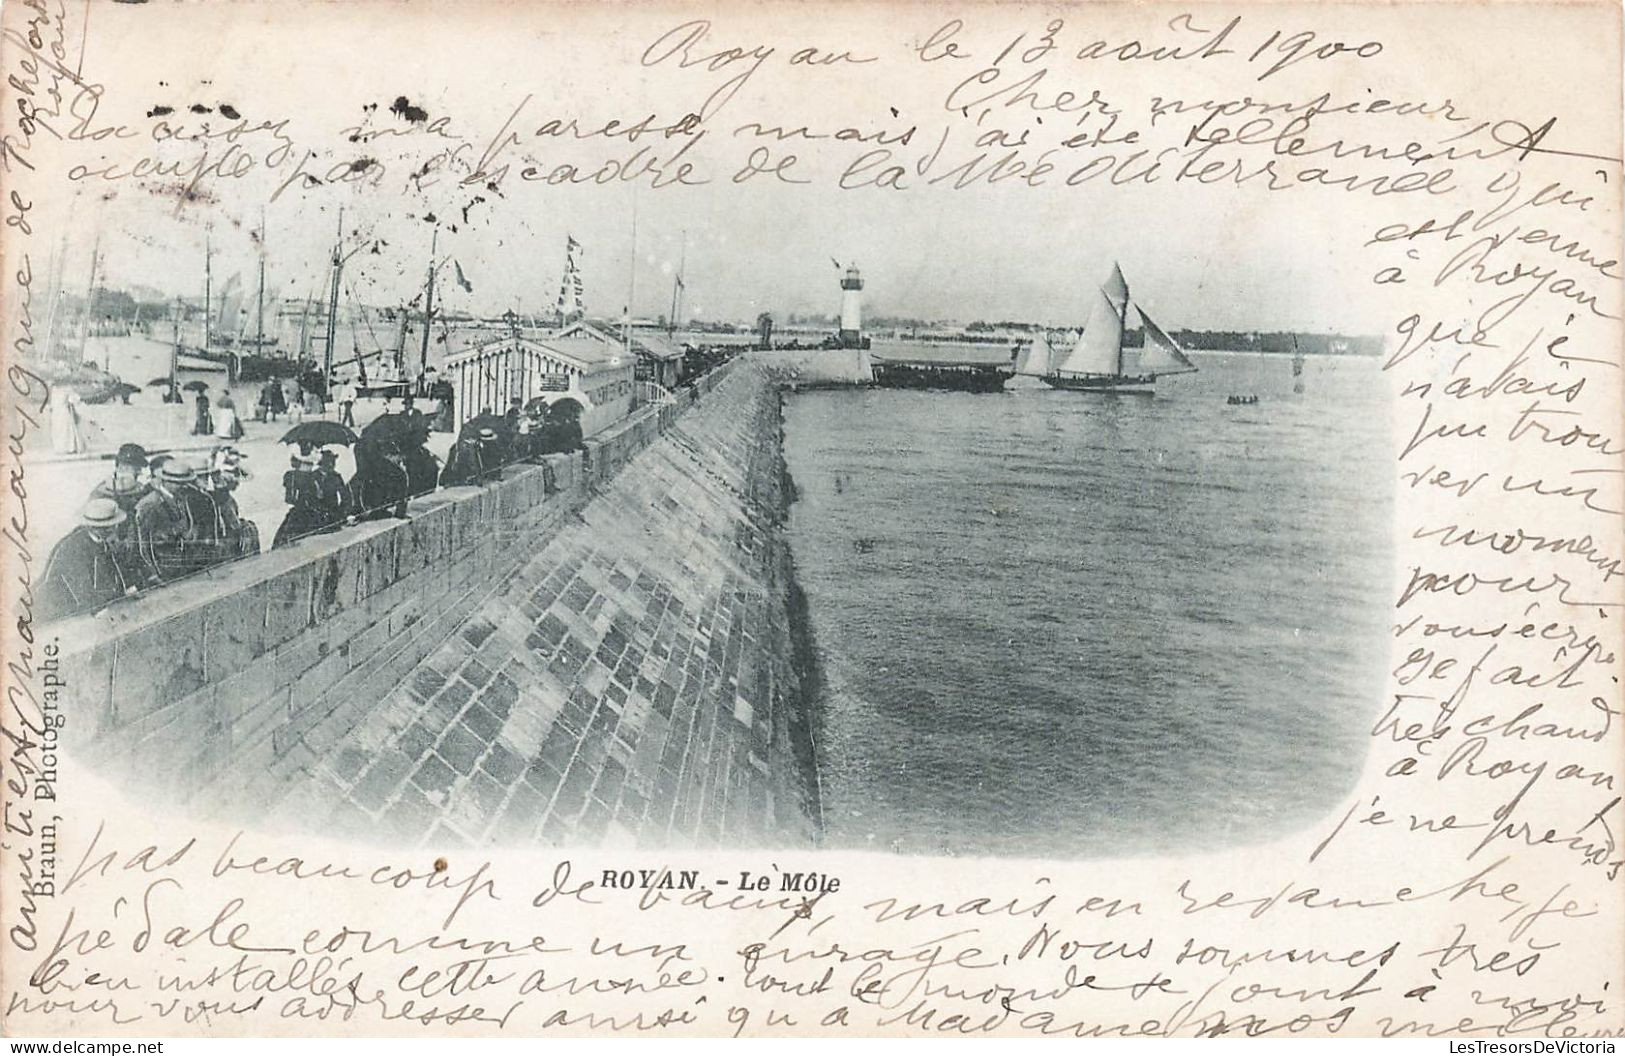 Royan le 13 août 1900
Cher monsieur
Excusez ma paresse, mais j'ai été tellement
occupé par l'escadre de la Méditerranée qui
est venue
à Royan
que je
n'avais
pu trou
ver un
moment
pour
vous écrire.
Il fait
très chaud
à Royan
je ne prends
pas beaucoup de bains, mais en revanche, je
pédale comme un enragé. Nous sommes très
bien installés cette année. Tout le monde se joint à moi
pour vous adresser ainsi qu'à Madame nos meilleures
amitiés. Chauveau, 9 rue de Rochefort
Royan
Braun, Photographe.
ROYAN. - Le Môle
LesTresorsDeVictoria